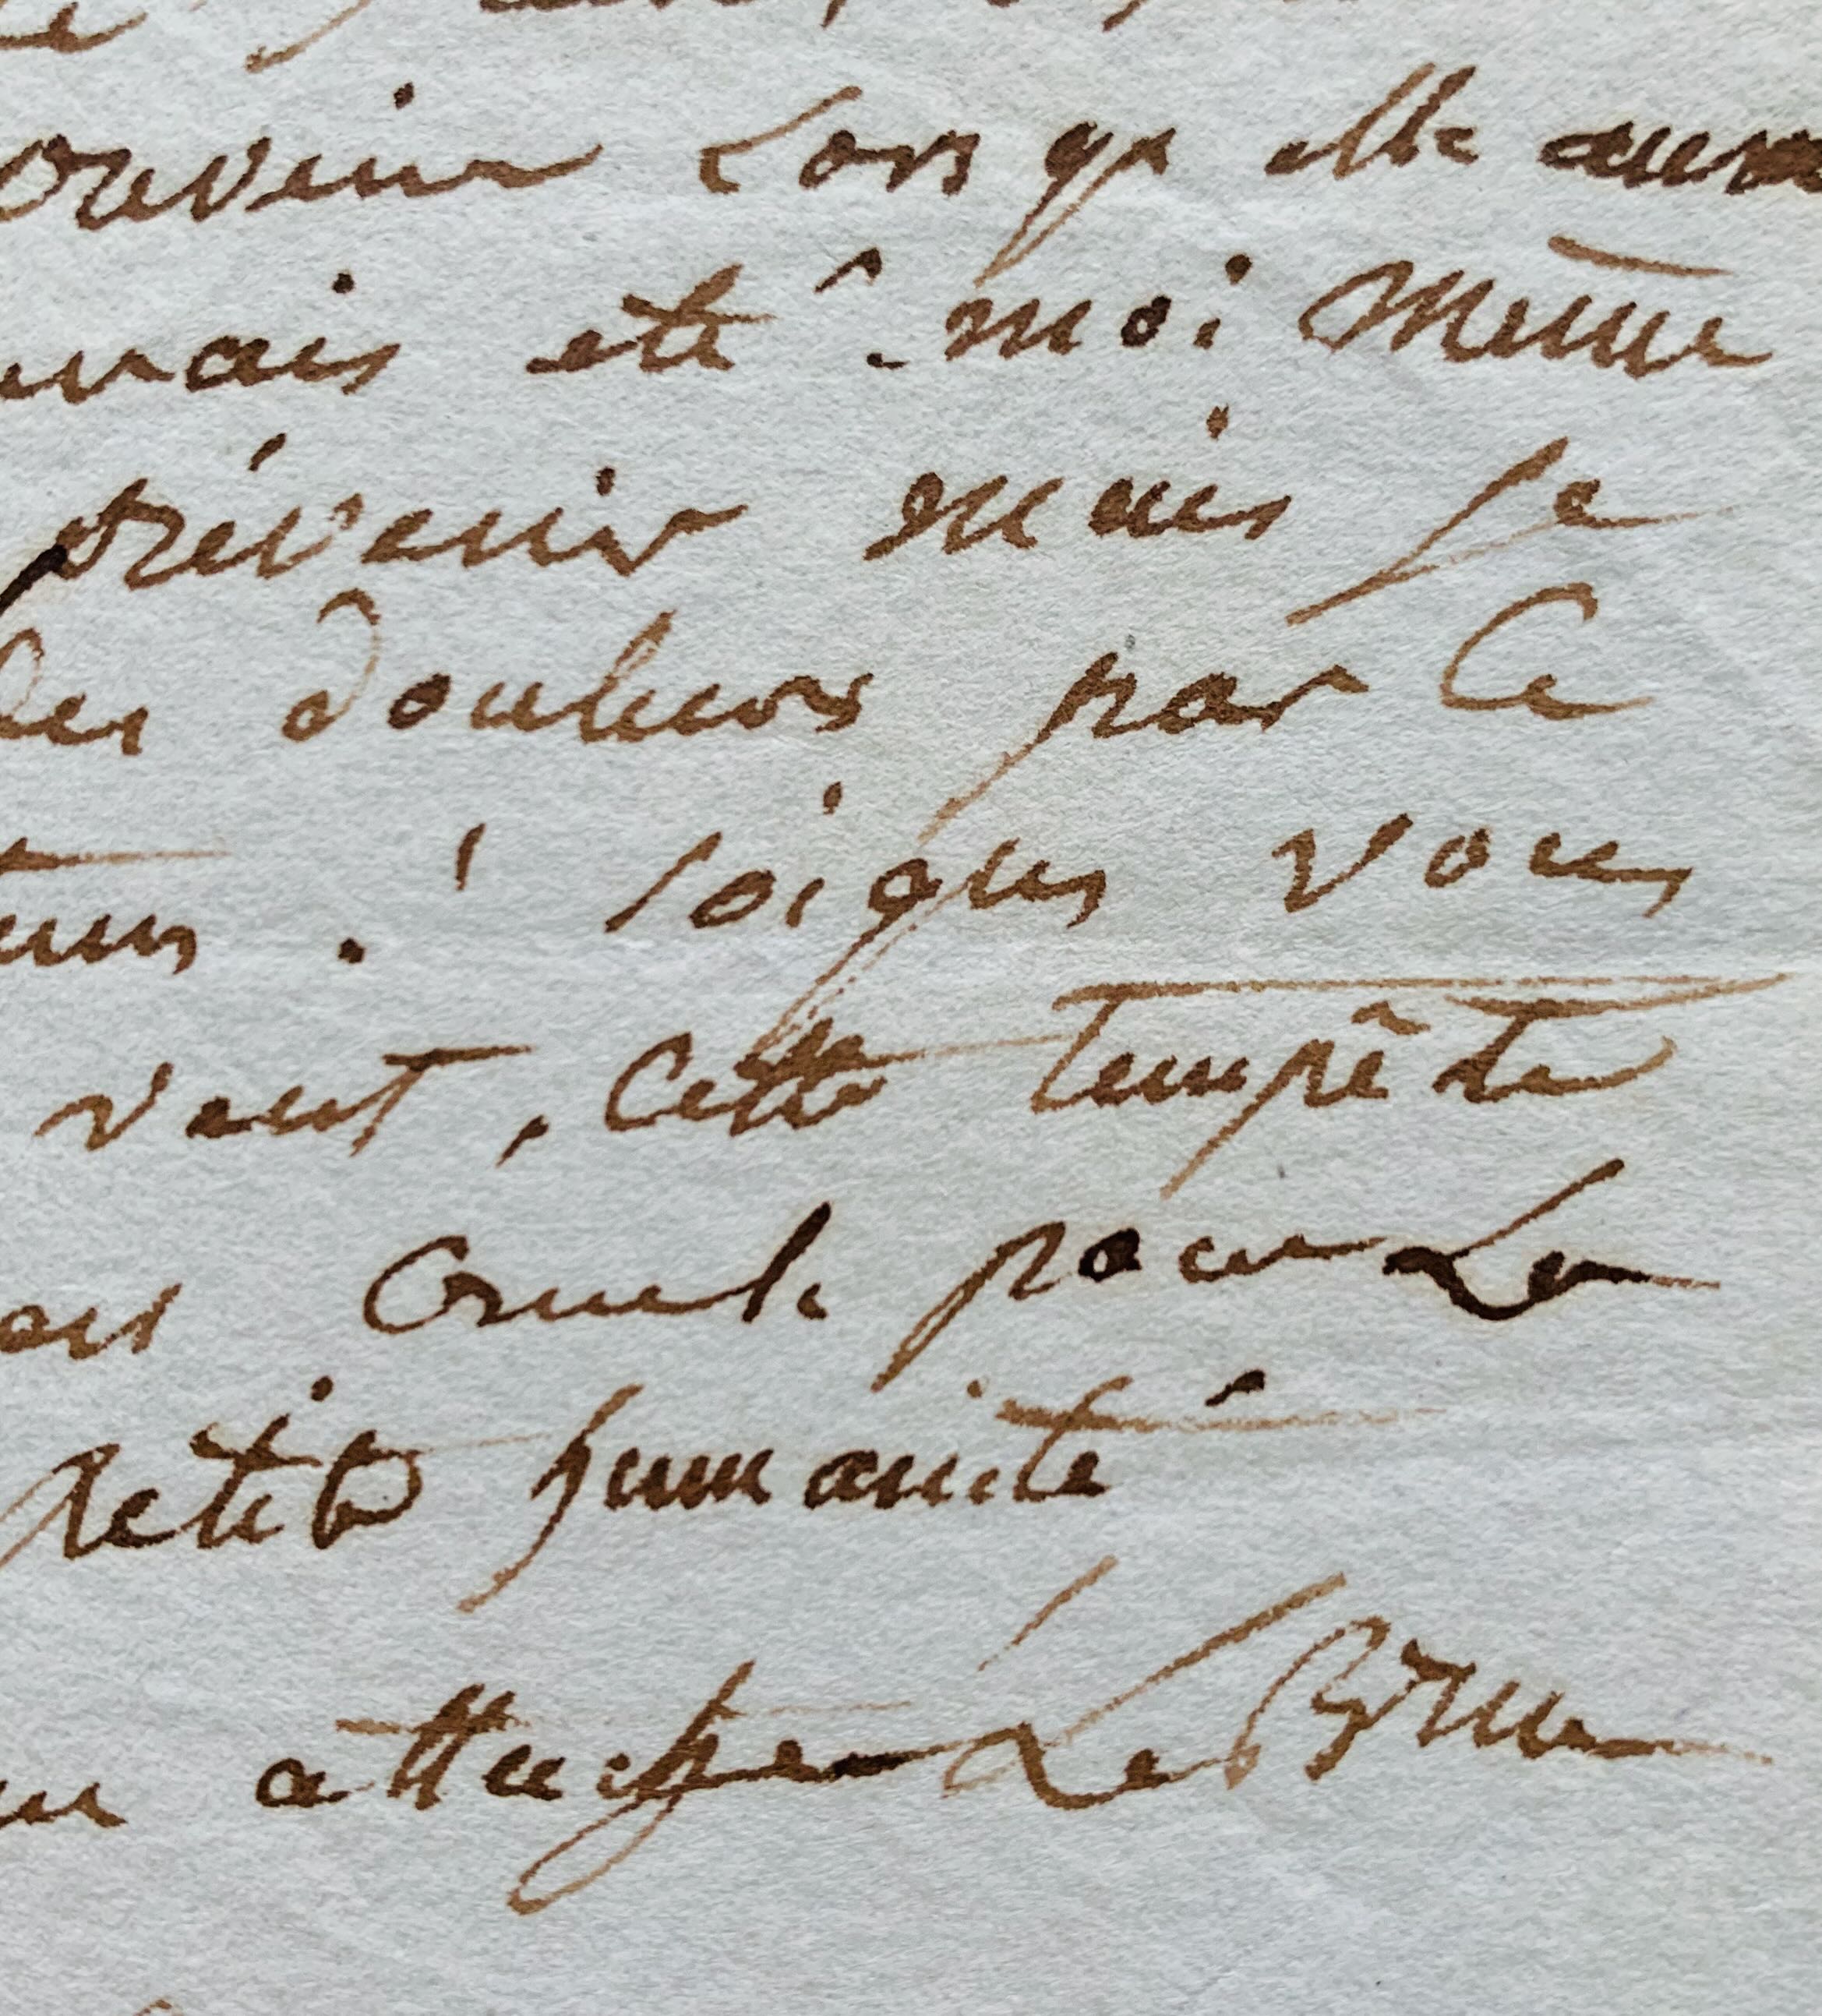 ouvenir Lors qe elle aura
urais eté moi même
prévenir mais je
des douleurs par ce
! soignes vous
vent, cette tempête
cruele pour La
petite humanité
attaché Le Brun